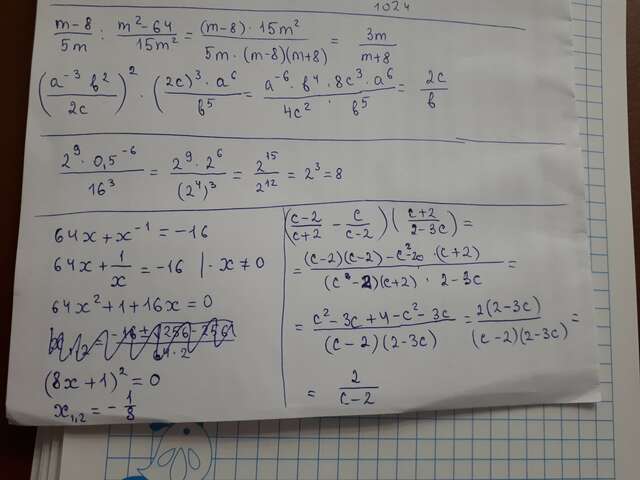 1024
(m-8)/(5m) : (m²-64)/(15m²) = ((m-8)·15m²)/(5m·(m-8)(m+8)) = 3m/(m+8)
((a⁻³ b²)/(2c))² · ((2c)³·a⁶)/(b⁵) = (a⁻⁶·b⁴·8c³·a⁶)/(4c²·b⁵) = 2c/b
(2⁹·0,5⁻⁶)/(16³) = (2⁹·2⁶)/((2⁴)³) = 2¹⁵/2¹² = 2³ = 8
64x+x⁻¹ = -16
64x+1/x = -16 |· x≠0
64x²+1+16x=0
(8x+1)²=0
x₁,₂ = -1/8
((c-2)/(c+2) - c/(c-2)) ((c+2)/(2-3c)) =
= ((c-2)(c-2) - c²-20·(c+2))/((c-2)(c+2)·2-3c) =
= (c²-3c+4-c²-3c)/((c-2)(2-3c)) = (2(2-3c))/((c-2)(2-3c)) =
= 2/(c-2)